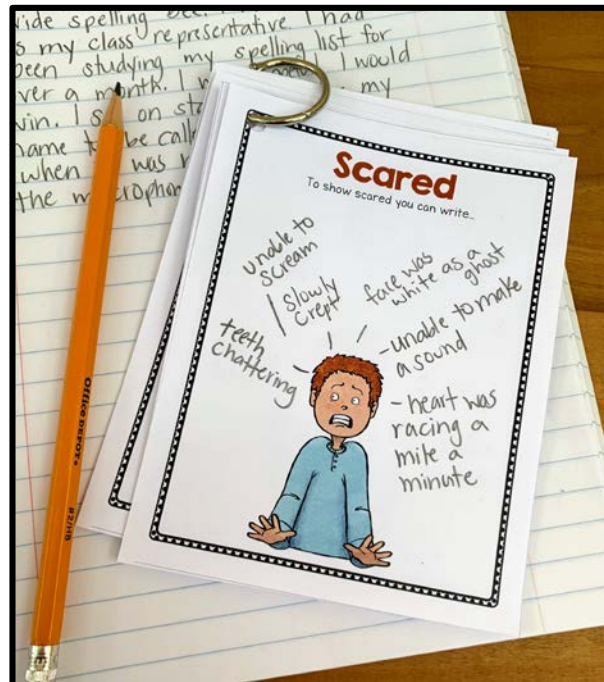 vide spelling bee. I
s my class representative. I had
been studying my spelling list for
ver a month. I I would
win. I s on sta my
name to be call
when was
the microphon
Scared
To show scared you can write...
unable to
scream
slowly
crept
face was
white as a
ghost
teeth
chattering
- unable to make
a sound
- heart was
racing a
mile a
minute
Office DEPOT
#2/HB